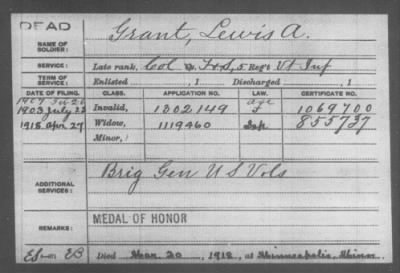 DEAD
NAME OF SOLDIER: Grant, Lewis A.
SERVICE: Late rank, Col F&S, 5 Reg't Vt Inf
TERM OF SERVICE: Enlisted , 1 Discharged , 1
DATE OF FILING. CLASS. APPLICATION NO. LAW. CERTIFICATE NO.
1907 age
1903 July 22 Invalid, 1302149 1069700
1918 Apr 27 Widow, 1119460 855737
Minor,
ADDITIONAL SERVICES: Brig Gen U S Vols
REMARKS: MEDAL OF HONOR
Died Mar 20, 1918, at Minneapolis, Minn.